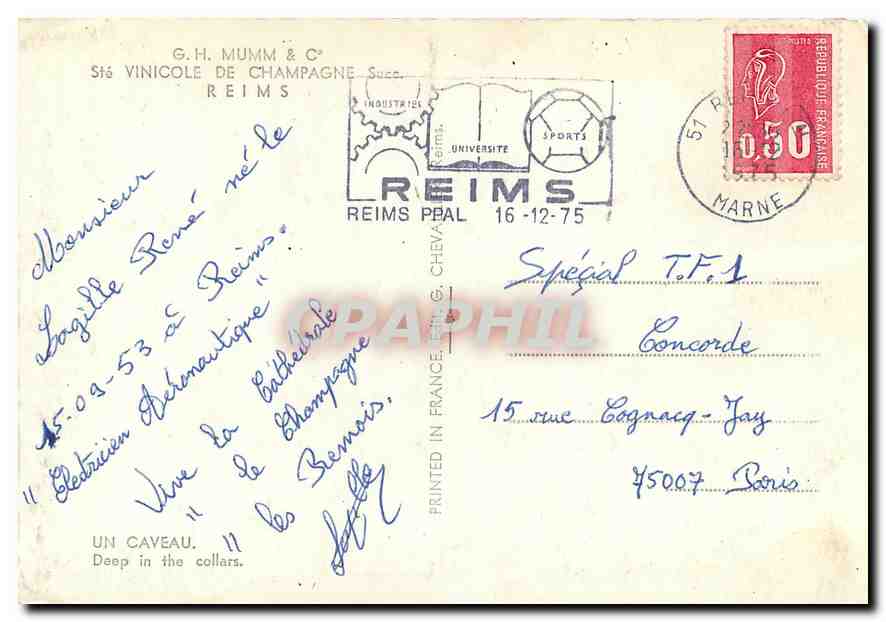 G. H. MUMM & Cº
Sté VINICOLE DE CHAMPAGNE Succ.
REIMS
INDUSTRIES
UNIVERSITE
SPORTS
REIMS
REIMS PPAL 16-12-75
51 REIMS
MARNE
0,50
REPUBLIQUE FRANÇAISE
POSTES
Monsieur
Lagille René né le
15-09-53 à Reims.
"Electricien Aéronautique"
Vive la Cathédrale
" le Champagne
" les Remois.
Lagille
Spécial T.F.1
Concorde
15 rue Cognacq-Jay
75007 Paris
PRINTED IN FRANCE. Edit. G. CHEVAL Reims.
CPAPHIL
UN CAVEAU.
Deep in the collars.